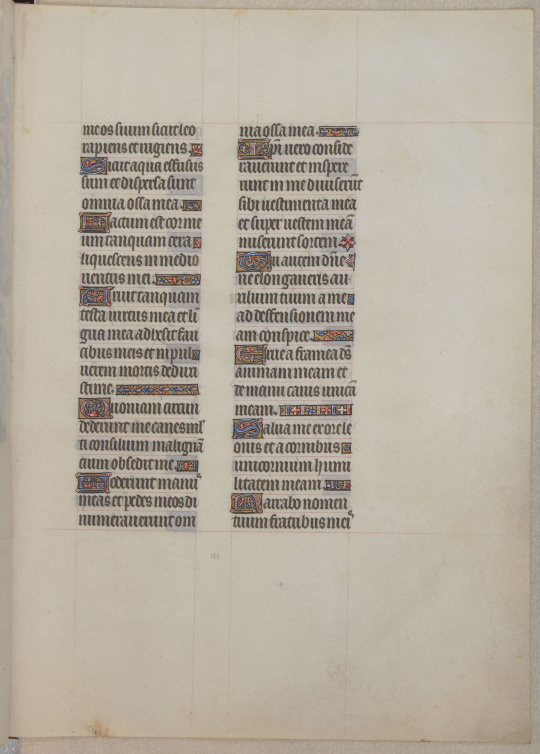 me os suum sicut leo
rapiens et rugiens.
Sicut aqua effusus
sum et dispersa sunt
omnia ossa mea.
Factum est cor me
um tanquam cera
liquescens in medio
ventris mei.
Aruit tanquam
testa virtus mea et li
gua mea adhesit fau
cibus meis et in pul
verem mortis deduxi
sti me.
Quoniam circun
dederunt me canes ml'
ti consilium malignā
cium obsedit me.
Foderunt manus
meas et pedes meos di
numeraverunt om
nia ossa mea.
Ipi vero conside
raverunt et inspexe
runt in me diviserūt
sibi vestimenta mea
et super vestem meā
miserunt sortem.
Tu autem dn̄e
ne elongaveris au
xilium tuum a me
ad deffensionem me
am conspice.
Erue a framea ds̄
animam meam et
de manu canis unicā
meam.
Salva me ex ore le
onis et a cornibus
unicornium humi
litatem meam.
Narrabo nomen
tuum fratribus meis